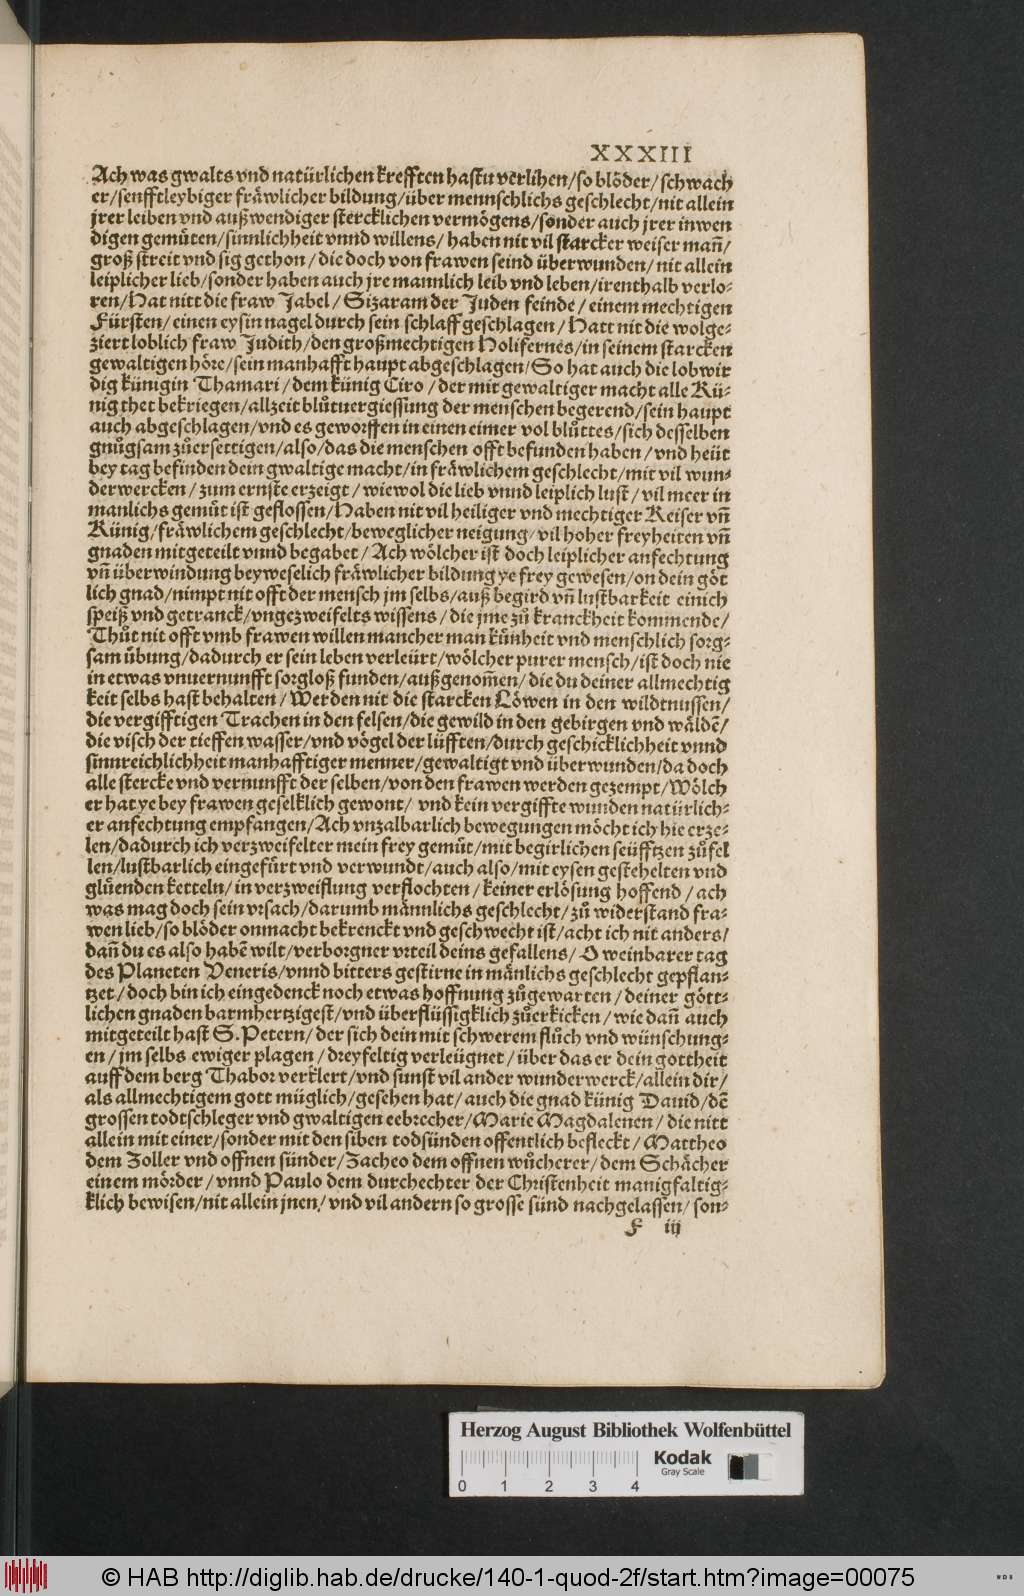 XXXIII
Ach was gwalts vnd natürlichen krefften hastu verlihen/so blöder/schwach
er/senfftleybiger fräwlicher bildung/über mennschlichs geschlecht/nit allein
jrer leiben vnd außwendiger stercklichen vermögens/sonder auch jrer inwen
digen gemüten/sinnlichheit vnnd willens/ haben nit vil starcker weiser mañ/
groß streit vnd sig gethon/ die doch von frawen seind überwunden/ nit allein
leiplicher lieb/sonder haben auch jre mannlich leib vnd leben/irenthalb verlo⸗
ren/Hat nitt die fraw Jabel/ Sizaram der Juden feinde/ einem mechtigen
Fürsten/ einen eysin nagel durch sein schlaff geschlagen/ Hatt nit die wolge⸗
ziert loblich fraw Judith/den großmechtigen Holifernes/in seinem starcken
gewaltigen höre/sein manhafft haupt abgeschlagen/So hat auch die lobwir
dig künigin Thamari/ dem künig Ciro/ der mit gewaltiger macht alle Kü⸗
nig thet bekriegen/allzeit blůtuergiessung der menschen begerend/sein haupt
auch abgeschlagen/vnd es geworffen in einen eimer vol blůttes/sich desselben
gnůgsam zůersettigen/also/das die menschen offt befunden haben/ vnd heüt
bey tag befinden dein gwaltige macht/in fräwlichem geschlecht/mit vil wun⸗
derwercken/ zum ernste erzeigt/ wiewol die lieb vnnd leiplich lust/ vil meer in
manlichs gemüt ist geflossen/Haben nit vil heiliger vnd mechtiger Keiser vñ
Künig/fräwlichem geschlecht/beweglicher neigung/ vil hoher freyheiten vñ
gnaden mitgeteilt vnnd begabet/ Ach wölcher ist doch leiplicher anfechtung
vñ überwindung beyweselich fräwlicher bildung ye frey gewesen/on dein göt
lich gnad/nimpt nit offt der mensch jm selbs/auß begird vñ lustbarkeit einich
speiß vnd getranck/vngezweifelts wissens/ die jme zů kranckheit kommende/
Thůt nit offt vmb frawen willen mancher man kůnheit vnd menschlich sorg⸗
sam übung/dadurch er sein leben verleürt/wölcher purer mensch/ist doch nie
in etwas vnuernunfft sorgloß funden/außgenom̃en/ die du deiner allmechtig
keit selbs hast behalten/ Werden nit die starcken Löwen in den wildtnussen/
die vergifftigen Trachen in den felsen/die gewild in den gebirgen vnd wäldẽ/
die visch der tieffen wasser/vnd vögel der lüfften/durch geschicklichheit vnnd
sinnreichlichheit manhafftiger menner/gewaltigt vnd überwunden/da doch
alle stercke vnd vernunfft der selben/von den frawen werden gezempt/Wölch
er hat ye bey frawen geselklich gewont/ vnd kein vergiffte wunden natürlich⸗
er anfechtung empfangen/Ach vnzalbarlich bewegungen möcht ich hie erze⸗
len/dadurch ich verzweifelter mein frey gemüt/mit begirlichen seüfftzen zůfel
len/lustbarlich eingefürt vnd verwundt/auch also/mit eysen gestehelten vnd
glüenden ketteln/ in verzweiflung verflochten/ keiner erlösung hoffend/ ach
was mag doch sein vrsach/darumb männlichs geschlecht/ zů widerstand fra⸗
wen lieb/so blöder onmacht bekrenckt vnd geschwecht ist/acht ich nit anders/
dañ du es also habẽ wilt/verborgner vrteil deins gefallens/ O weinbarer tag
des Planeten Veneris/vnnd bitters gestirne in mänlichs geschlecht gepflan⸗
tzet/ doch bin ich eingedenck noch etwas hoffnung zůgewarten/ deiner gött⸗
lichen gnaden barmhertzigest/vnd überflüssigklich zůerkicken/ wie dañ auch
mitgeteilt hast S. Petern/ der sich dein mit schwerem flůch vnd wünschung⸗
en/ jm selbs ewiger plagen/ dreyfeltig verleügnet/ über das er dein gottheit
auff dem berg Thabor verklert/vnd sunst vil ander wunderwerck/allein dir/
als allmechtigem gott müglich/gesehen hat/ auch die gnad künig Dauid/dẽ
grossen todtschleger vnd gwaltigen eebrecher/Marie Magdalenen/ die nitt
allein mit einer/sonder mit den siben todsünden offentlich befleckt/ Mattheo
dem Zoller vnd offnen sünder/Zacheo dem offnen wůcherer/ dem Schächer
einem mörder/ vnnd Paulo dem durchechter der Christenheit manigfaltig⸗
klich bewisen/nit allein jnen/ vnd vil andern so grosse sünd nachgelassen/ son⸗
F iij
Herzog August Bibliothek Wolfenbüttel
Kodak
Gray Scale
0 1 2 3 4
© HAB http://diglib.hab.de/drucke/140-1-quod-2f/start.htm?image=00075